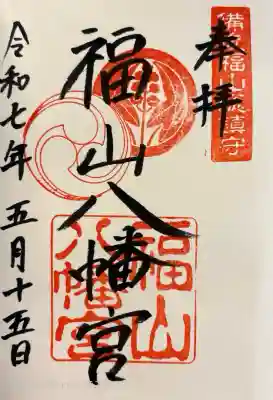 奉拝
備後福山総鎮守
福山八幡宮
福山
八幡宮
令和七年 五月十五日